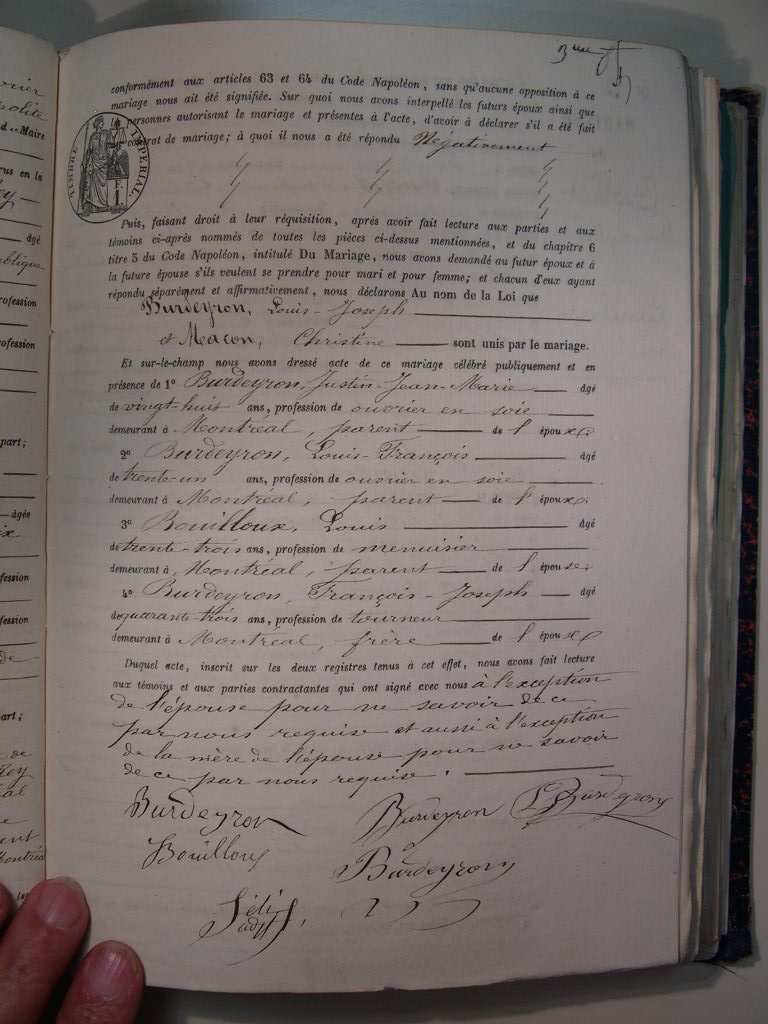 3me
conformément aux articles 63 et 64 du Code Napoléon, sans qu'aucune opposition à ce
mariage nous ait été signifiée. Sur quoi nous avons interpellé les futurs époux ainsi que
personnes autorisant le mariage et présentes à l'acte, d'avoir à déclarer s'il a été fait
contrat de mariage; à quoi il nous a été répondu Négativement
TIMBRE IMPÉRIAL
Puis, faisant droit à leur réquisition, après avoir fait lecture aux parties et aux
témoins ci-après nommés de toutes les pièces ci-dessus mentionnées, et du chapitre 6
titre 5 du Code Napoléon, intitulé Du Mariage, nous avons demandé au futur époux et à
la future épouse s'ils veulent se prendre pour mari et pour femme; et chacun d'eux ayant
répondu séparément et affirmativement, nous déclarons Au nom de la Loi que
Burdeyron, Louis-Joseph
et Macon, Christine sont unis par le mariage.
Et sur-le-champ nous avons dressé acte de ce mariage célébré publiquement et en
présence de 1º Burdeyron, Justin-Jean-Marie âgé
de vingt-huit ans, profession de ouvrier en soie
demeurant à Montréal, parent de l'époux
2º Burdeyron, Louis-François âgé
de trente-un ans, profession de ouvrier en soie
demeurant à Montréal, parent de l'époux
3º Bouilloux, Louis âgé
de trente-trois ans, profession de menuisier
demeurant à Montréal, parent de l'épouse
4º Burdeyron, François-Joseph âgé
de quarante-trois ans, profession de tourneur
demeurant à Montréal, frère de l'époux
Duquel acte, inscrit sur les deux registres tenus à cet effet, nous avons fait lecture
aux témoins et aux parties contractantes qui ont signé avec nous à l'exception
de l'épouse pour ne savoir de ce
par nous requise et aussi à l'exception
de la mère de l'épouse pour ne savoir
de ce par nous requise.
Burdeyron Burdeyron L. Burdeyron
Bouilloux Burdeyron